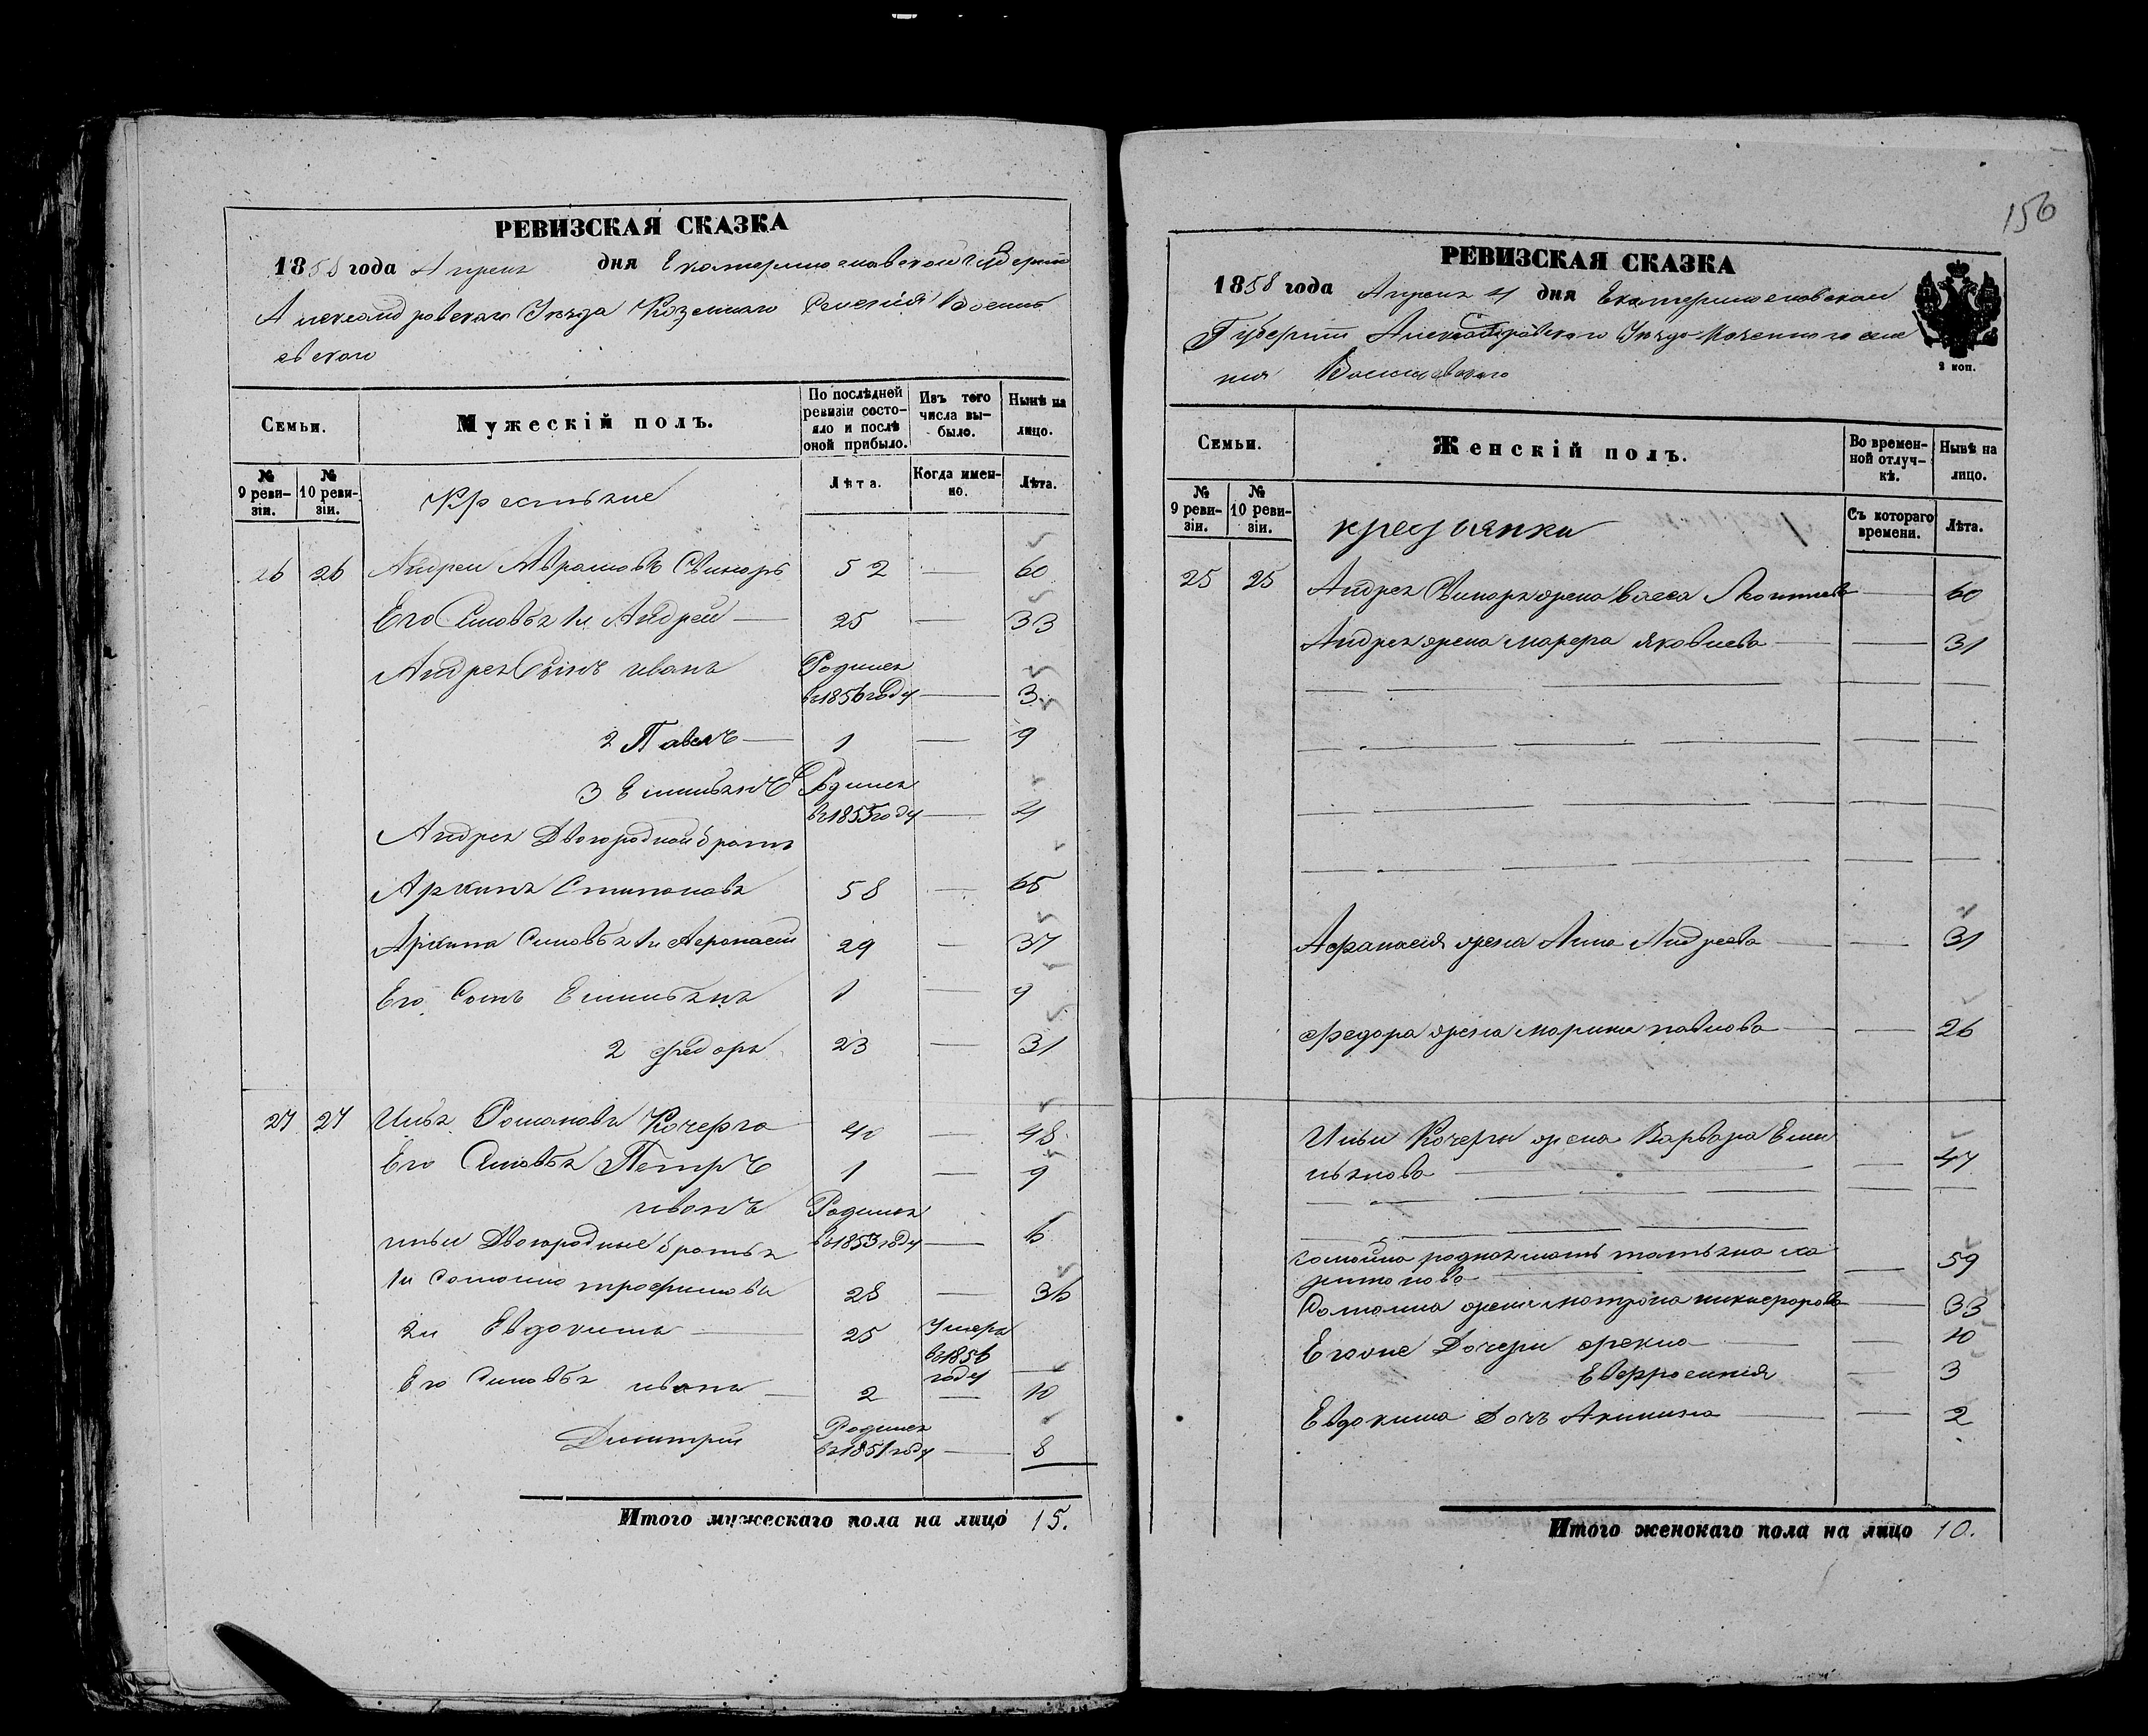 РЕВИЗСКАЯ СКАЗКА
1858 года Апреля дня Екатеринославской Губернии
Александровского Уѣзда Казенного Селенія
Семьи.
Мужескій полъ.
По послѣдней ревизіи состояло и послѣ оной прибыло.
Изъ того числа выбыло.
Нынѣ на лицо.
№ 9 ревизіи.
№ 10 ревизіи.
Крестьяне
Лѣта.
Когда именно.
Лѣта.
26 26 Андрей Аврамовъ Свинарь 52 — 60
Его Сыновья 1й Андрей — 25 — 33
Андрея Сынъ иванъ Родился въ 1856 году — 3
2 Павелъ — 1 — 9
3 Емильянъ Родился въ 1855 году — 4
Андрея Двоюродной братъ
Архипъ Стипоновъ 58 — 66
Архипа Сыновья 1й Афонасий 29 — 37
Его Сынъ Емильянъ 1 — 9
2 федоръ 23 — 31
27 27 Илья Романовъ Кочерга 40 — 48
Его Сыновья Петръ 1 — 9
иванъ Родился въ 1853 году — 6
ильи Двоюродные братья
1й Самойло трофимовъ 28 — 36
2й Евдокимъ — 25 Умеръ въ 1856 году —
Его Сыновья иванъ — 2 — 10
Димитрий Родился въ 1851 году — 8
Итого мужескаго пола на лицо 15.
156
РЕВИЗСКАЯ СКАЗКА
1858 года Апреля 4 дня Екатеринославской
Губернии Александровского Уѣзда Козенного селе
ния
2 коп.
Семьи.
Женскій полъ.
Во временной отлучкѣ.
Нынѣ на лицо.
№ 9 ревизіи.
№ 10 ревизіи.
крестьянки
Съ котораго времени.
Лѣта.
25 25 Андрея Свинаря жена Васса — 60
Андрея жена марфа яковлева — — 31
Афанасия жена Анна Андреева — — 31
федора жена марина павлова — — 26
Ильи Кочерги жена Варвара Еми
льянова — — 47
самойла родная мать татьяна ха
ритонова — — 59
Самойла жена матрона никифорова — 33
Еговые Дочери фекла — — 10
Евфросиния — 3
Евдокима Дочь Акилина — — 2
Итого женскаго пола на лицо 10.